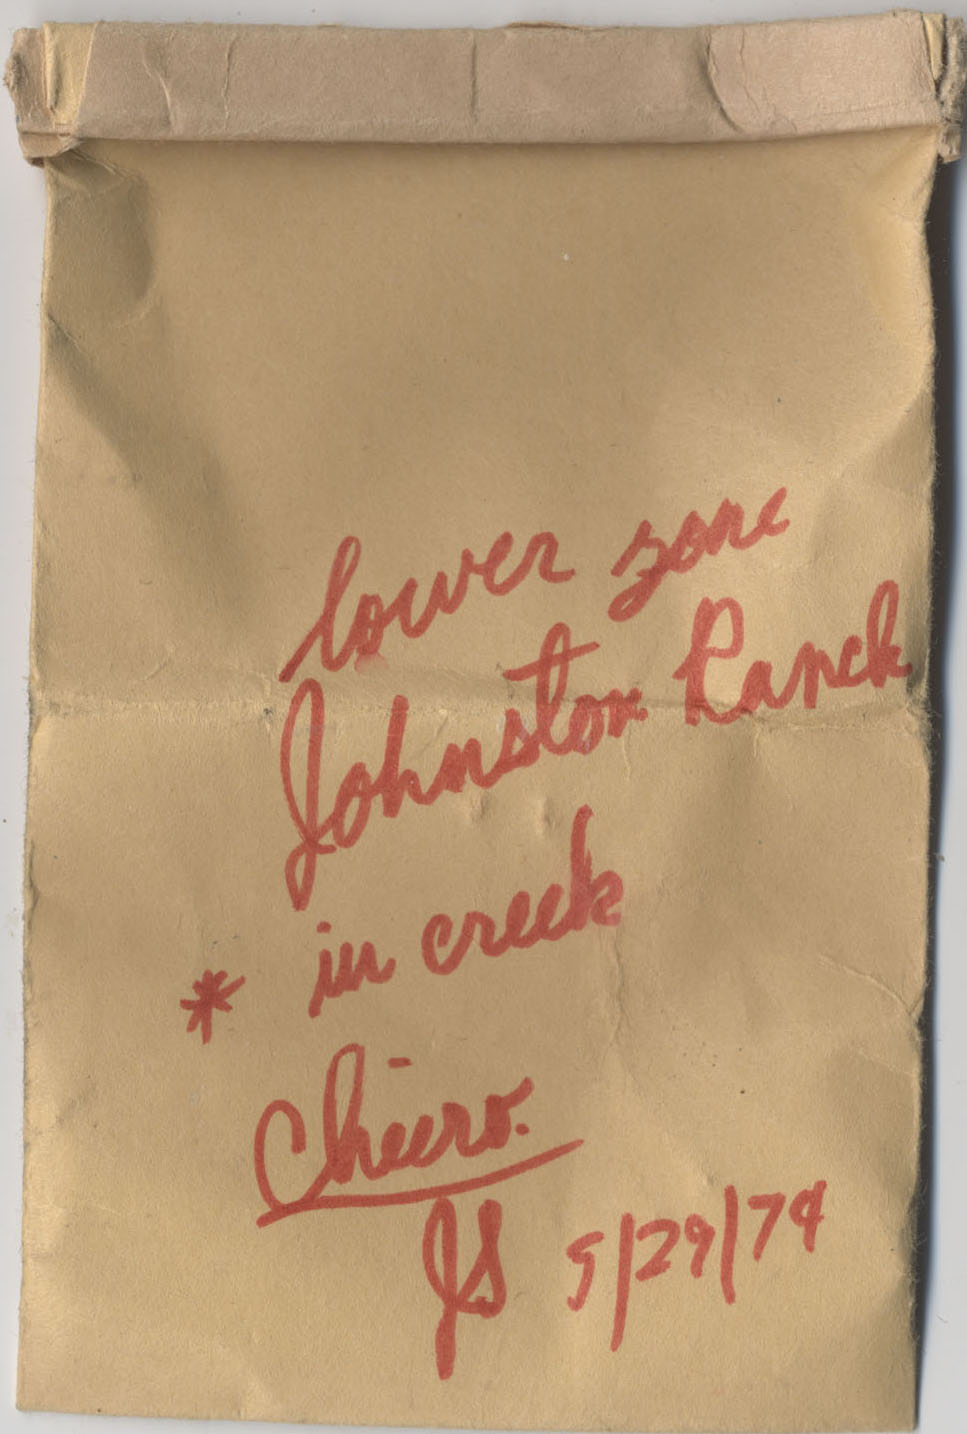 lower zone
Johnston Ranch
* in creek
JS 5/29/74